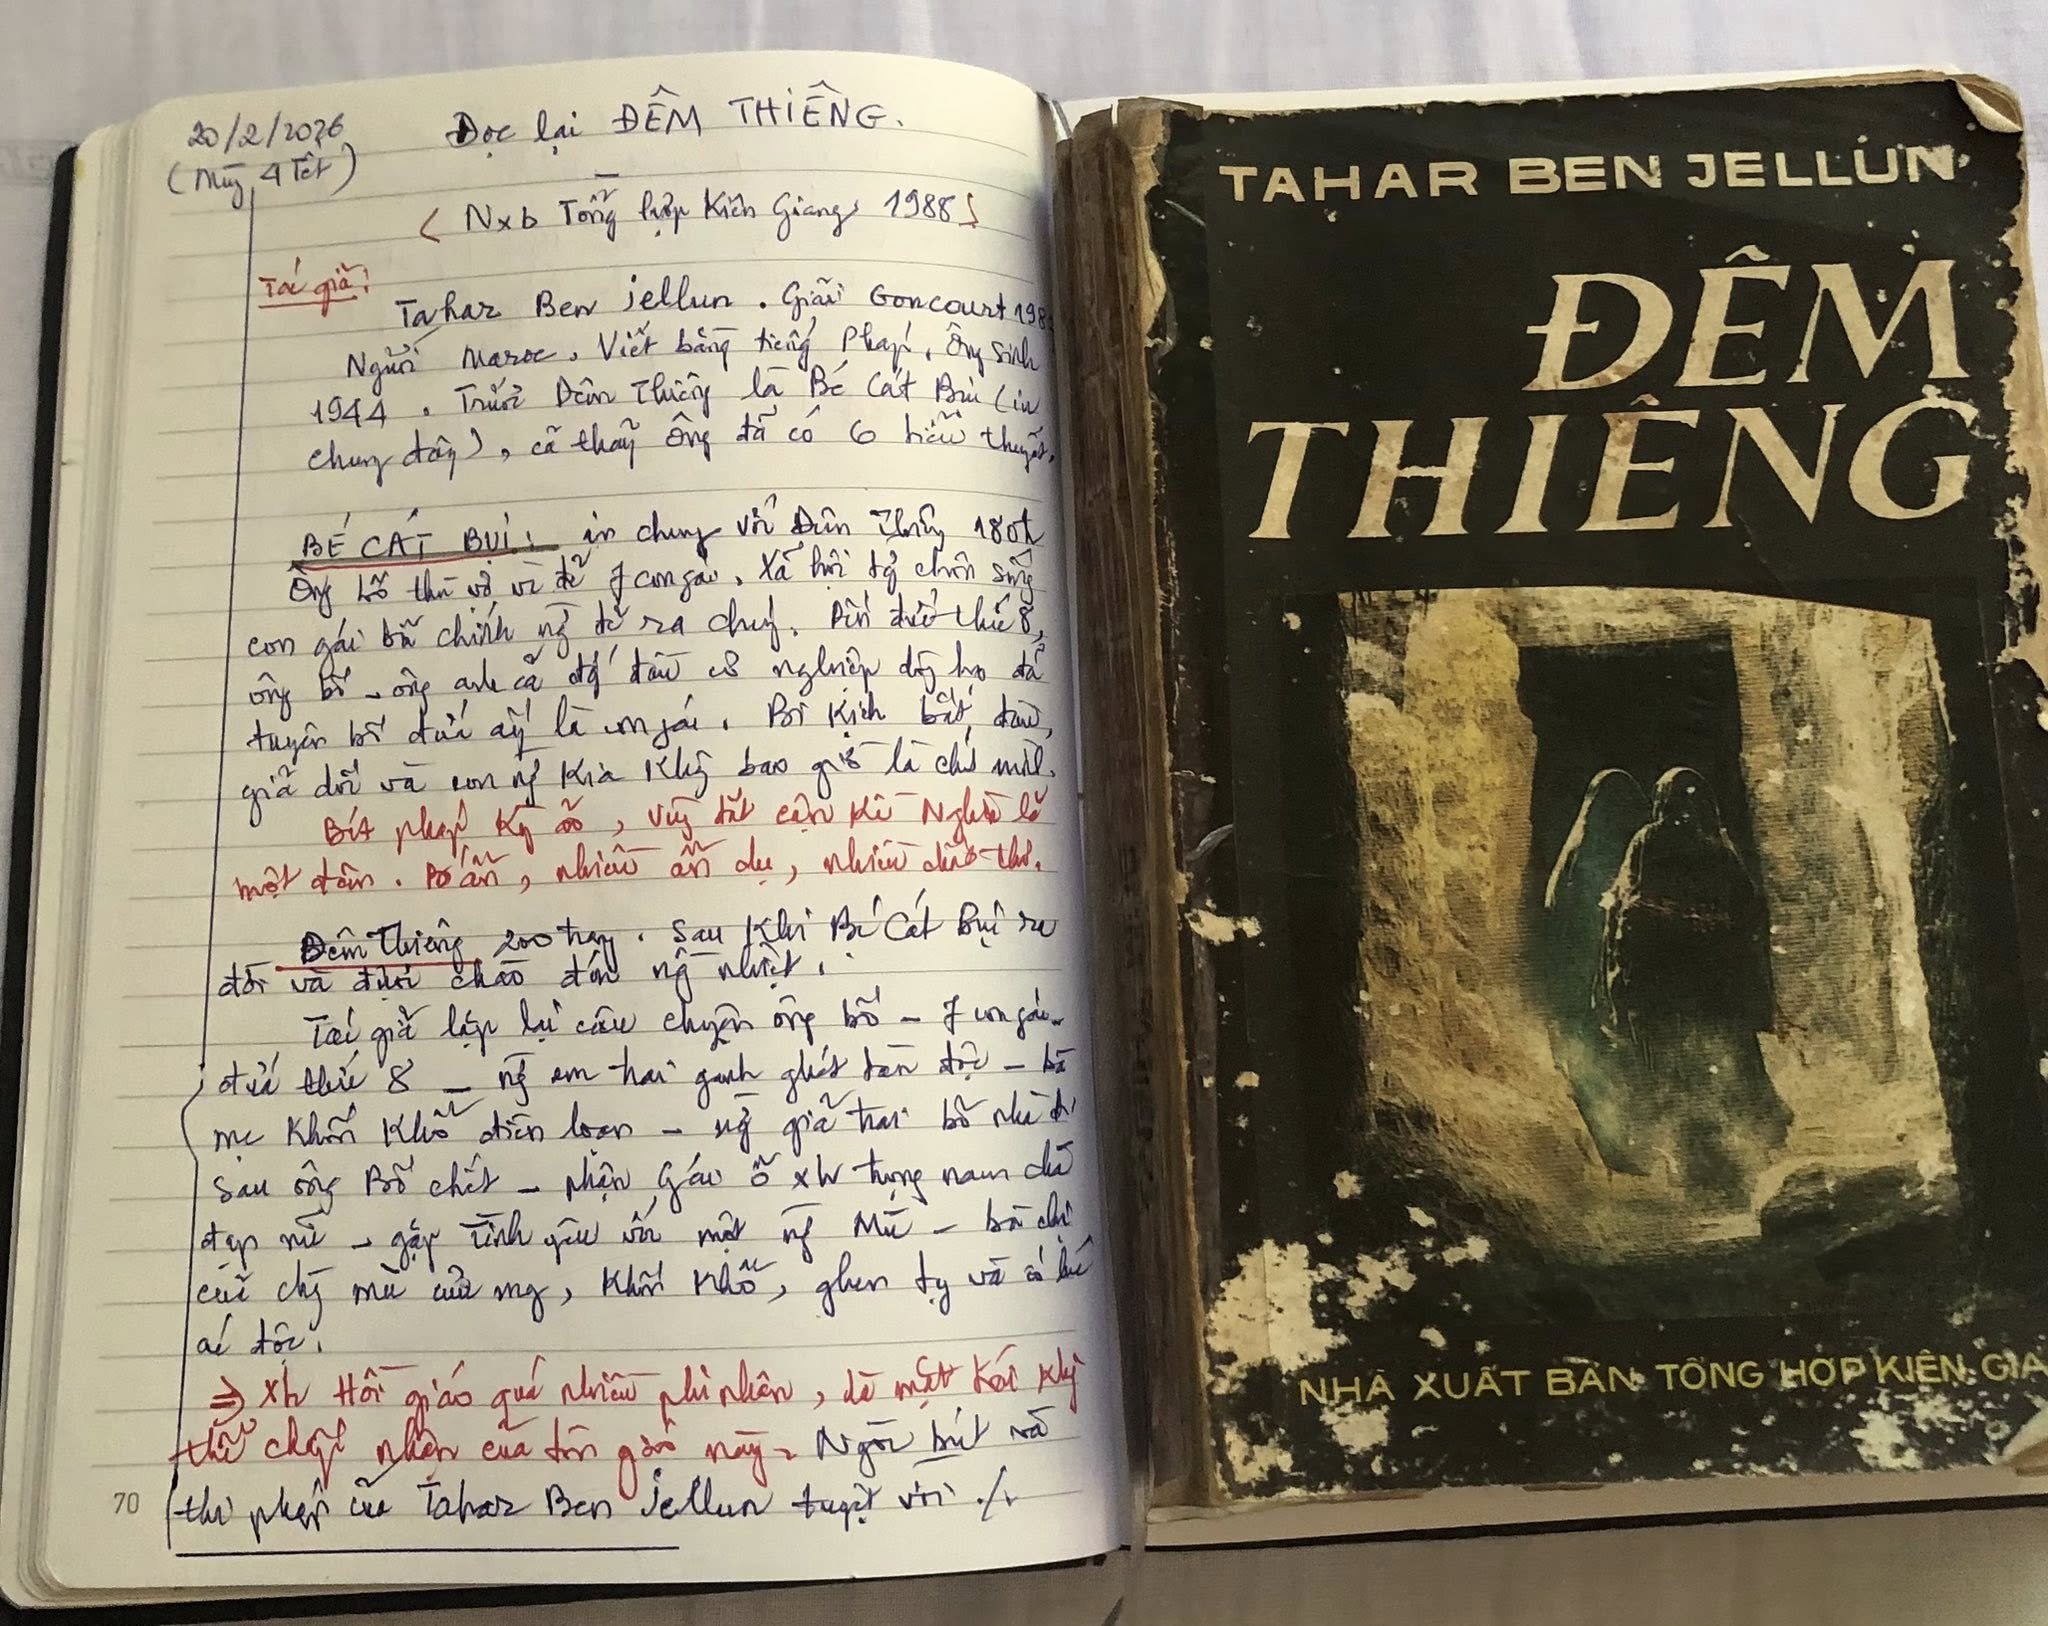 20/2/2026
(Mùng 4 Tết)
Đọc lại ĐÊM THIÊNG.
(Nxb Tổng hợp Kiên Giang 1988)
Tác giả:
Tahar Ben Jellun. Giải Goncourt 198
Người Maroc. Viết bằng tiếng Pháp. Ông sinh
1944. Trước Đêm Thiêng là Bé Cát Bụi (in
chung đây), cả thảy ông đã có 6 tiểu thuyết.
BÉ CÁT BỤI: in chung với Đêm Thiêng 180tr
Ông bố thù vợ vì đẻ 7 con gái. Xã hội từ chôn sống
con gái bởi chính ng đẻ ra chúng. Đến đứa thứ 8,
ông bố - ông anh cả để cơ nghiệp dòng họ đã
tuyên bố đứa ấy là con gái. Bi kịch bắt đầu,
giả dối và con ng kia không bao giờ là chính mình.
Bút pháp kỳ ảo, vùng đất cận kề Nghìn lẻ
một đêm. Bí ẩn, nhiều ẩn dụ, nhiều chất thơ.
Đêm Thiêng 200 trang. Sau khi Bé Cát Bụi ra
đời và được chào đón ng nhiệt.
Tác giả lặp lại câu chuyện ông bố - 7 con gái -
đứa thứ 8 - ng em trai ganh ghét tàn độc - bà
mẹ khốn khổ điên loạn - ng giả trai bỏ nhà đi
sau ông Bố chết - phận gái ở xh trọng nam chà
đạp nữ - gặp tình yêu với một ng Mù - bà chị
của chàng mù của mg, khốn khổ, ghen tỵ và có lúc
ác độc.
⇒ xh Hồi giáo quá nhiều phi nhân, là mặt trái không
thể chấp nhận của tôn giáo này. Ngòi bút và
thi pháp của Tahar Ben Jellun tuyệt vời ./.
70
TAHAR BEN JELLUN
ĐÊM
THIÊNG
NHÀ XUẤT BẢN TỔNG HỢP KIÊN GIA